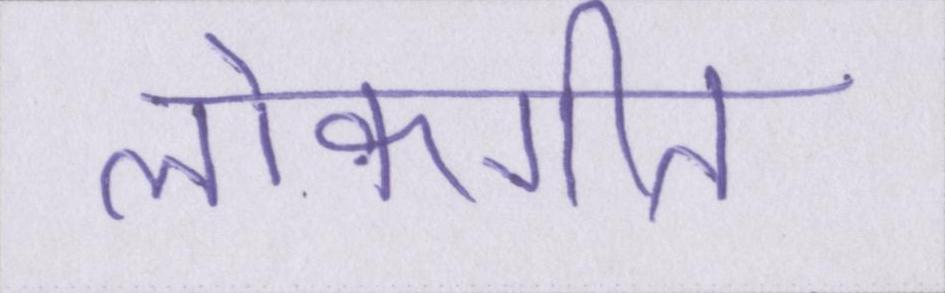 लोकगीत